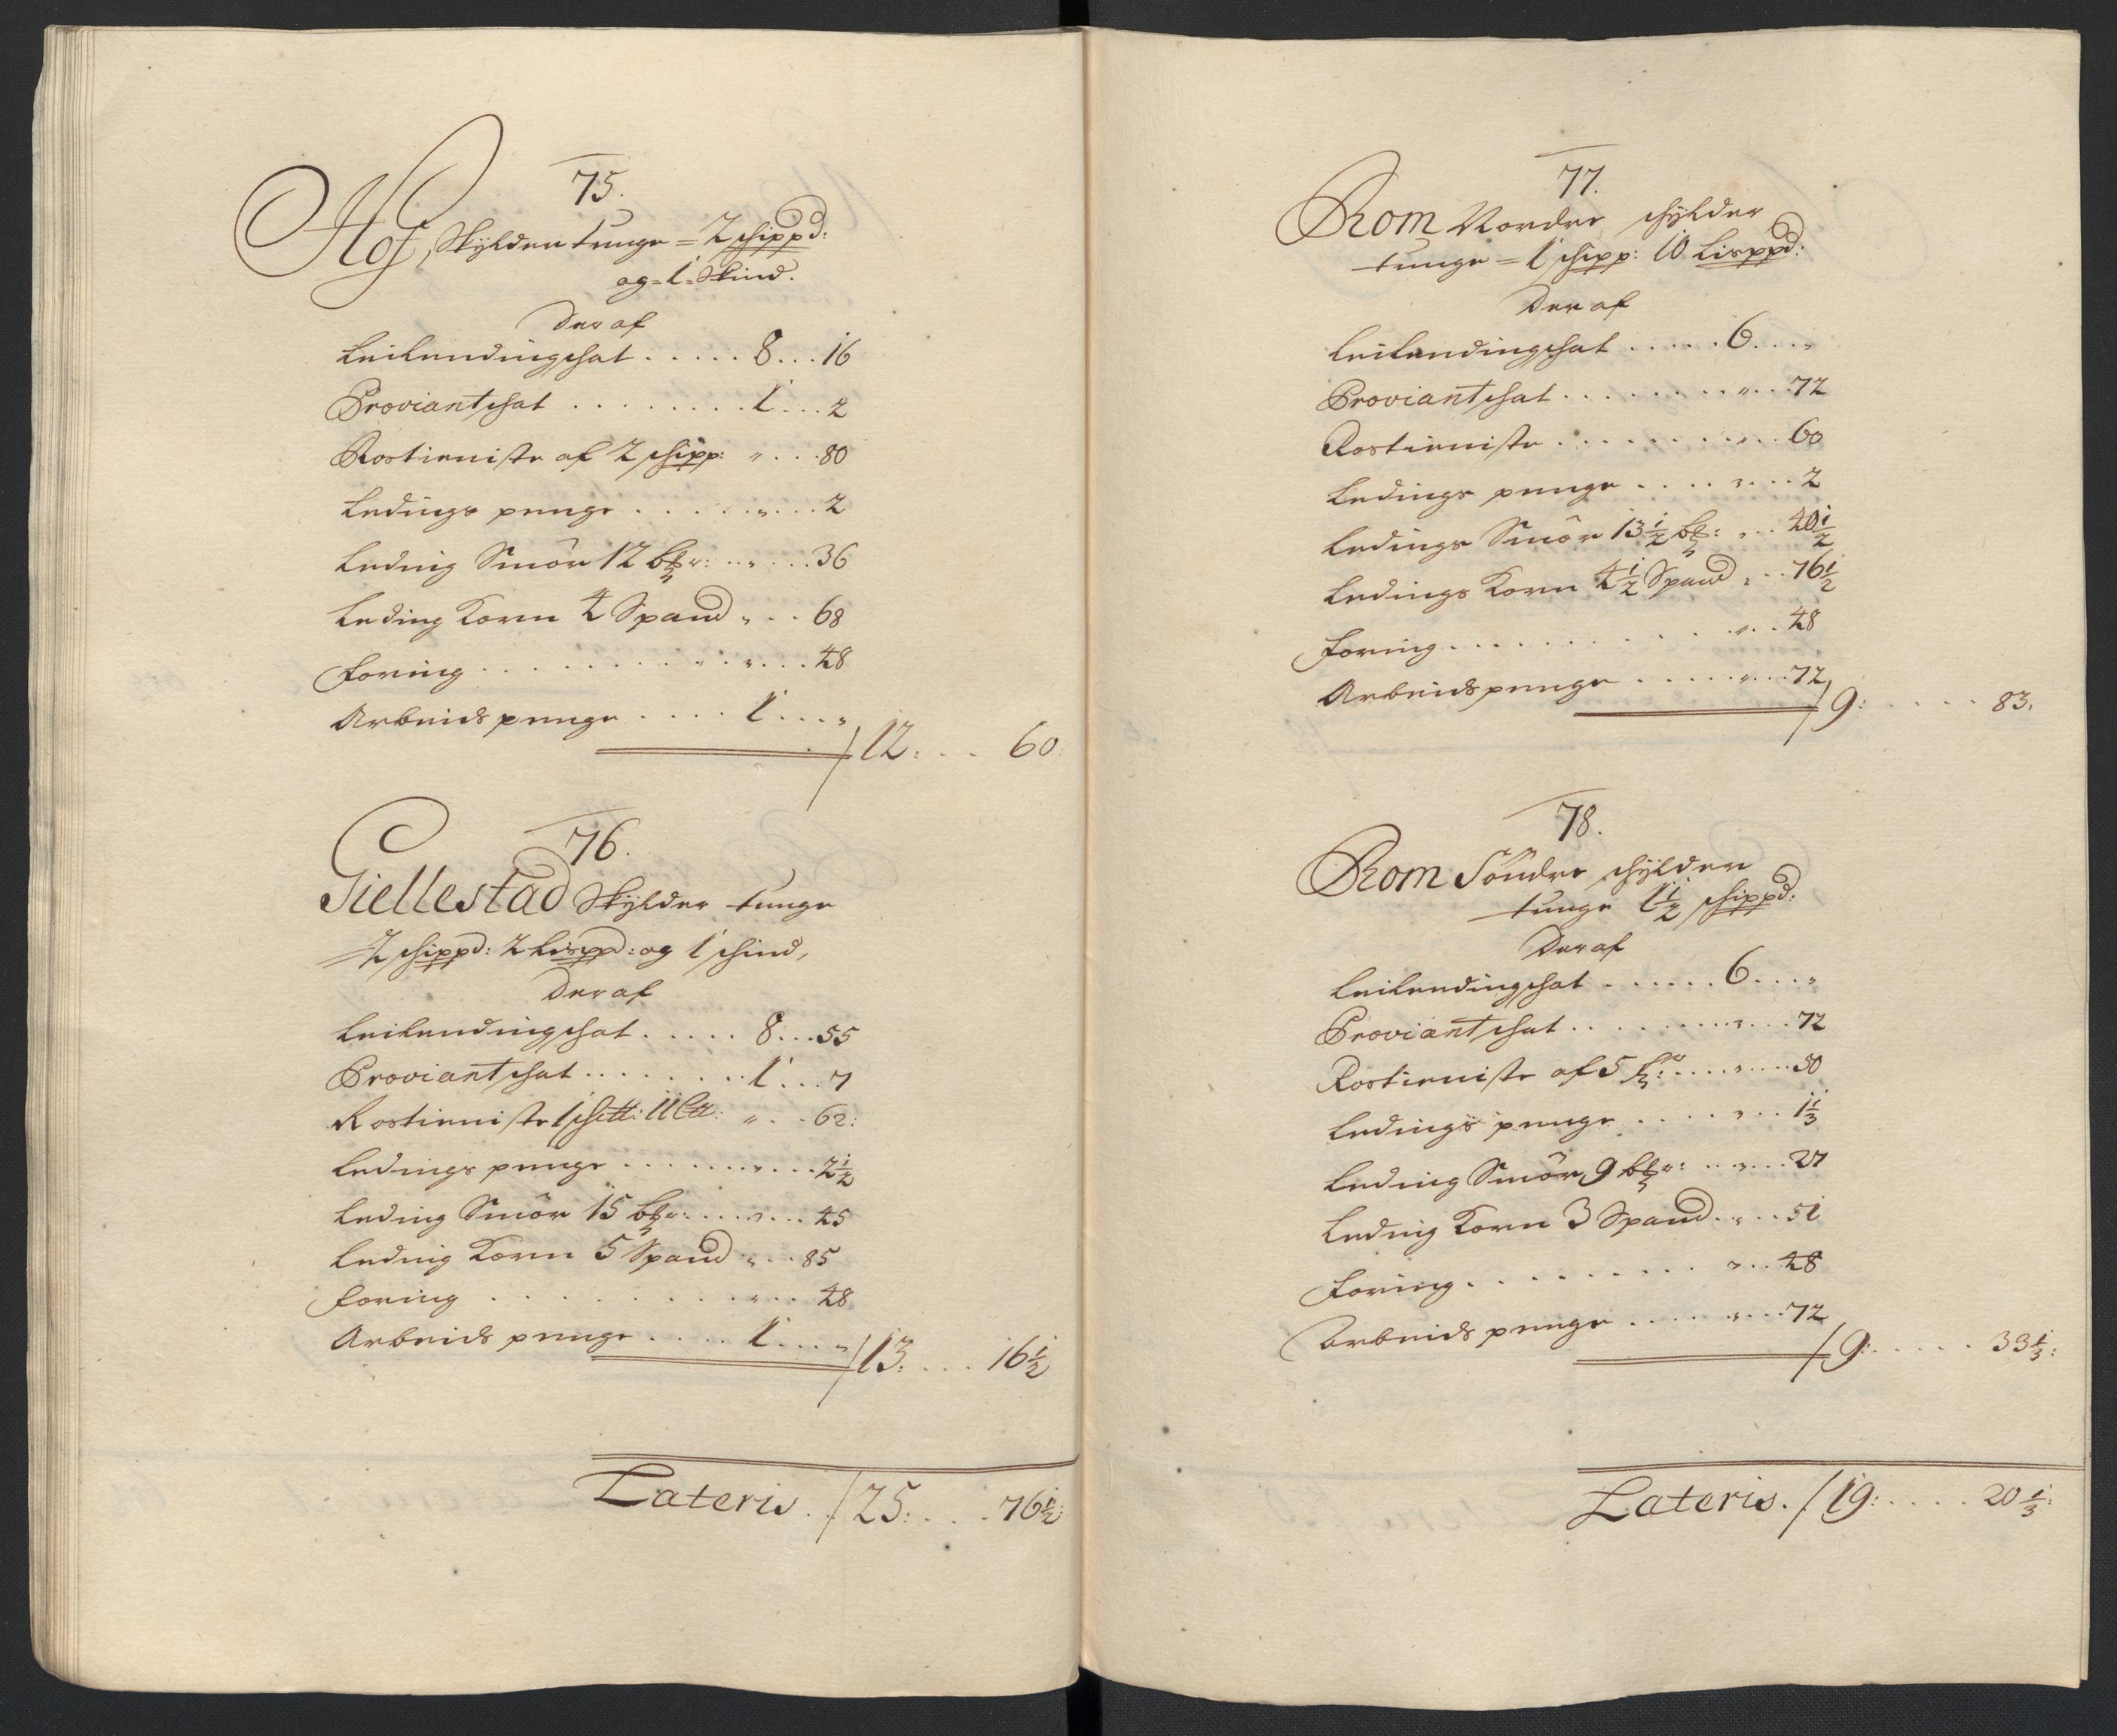 75.
Hof, Skylder tunge = 2 schippd:
og = 1 = Skind.
Der af
Leilendingschat . . . . . 8 . . . 16
Proviantschat . . . . . . . . 1 . . . 2
Rostieniste af 2 schipp: " . . . 80
Ledings penge . . . . . " . . . 2
Leding Smör 12 bpr: . . " . . . 36
Leding Korn 4 Spand " . . . 68
Foring . . . . . . . . " . . . 48
Arbeids penge . . . . 1 . . . "
/12: . . . 60
76.
Giellestad Skylder tunge
= 2 schippd: 2 Lisppd: og 1 schind,
Der af
Leilendingschat . . . . . 8 . . . 55
Proviantschat . . . . . . . 1 . . . 7
Rostieniste 1 schtt: 11 Ltt: " . . 62:
Ledings penge . . . . . . " . . . 2½
Leding Smör 15 bpr: . . . . " . . . 45
Leding Korn 5 Spand " . . . 85
Foring . . . . . . . . " . . . 48
Arbeids penge . . . . 1 . . . "
/13: . . . 16½
Lateris . . /25: . . . 76½:
77.
Rom Nordre schylder
tunge = 1 schipp: 10 Lisppd:
Der af
Leilendingschat . . . . . 6 . . . "
Proviantschat . . . . . . . . " . . . 72
Rostieniste . . . . . . . . " . . . 60
Ledings penge . . . . " . . . 2
Ledings Smör 13½ bp: " . . . 40½
Ledings Korn 4½ Spand " . . . 76½
Foring . . . . . . . . " . . . 48
Arbeids penge . . . . . " . . . 72
/9: . . . . . 83.
78.
Rom Söndre schylder
tunge 1½ schippd:
Der af
Leilendingschat . . . . . . 6 . . . "
Proviantschat . . . . . . . " . . . 72
Rostieniste af 5 . . . . " . . . 30
Ledings penge . . . . " . . . 1⅓
Leding Smör 9 bpr: . . " . . . 27
Leding Korn 3 Spand . " . . . 51
Foring . . . . . . . . " . . . 48
Arbeids penge . . . . . " . . . 72
/9: . . . . . 33⅓:
Lateris. /19: . . . . 20⅓: